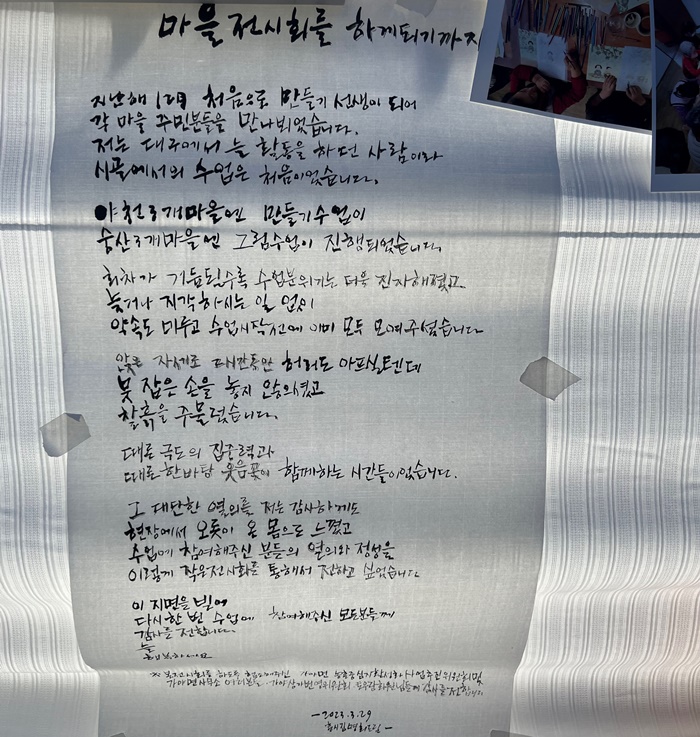 마을전시회를 함께되기까지
지난해 12月 처음으로 만들기 선생이 되어
각 마을 주민분들을 만나뵈었습니다.
저는 대구에서 늘 활동을 하던 사람이라
시골에서의 수업은 처음이었습니다.
야천3개마을엔 만들기수업이
숭산3개마을엔 그림수업이 진행되었습니다.
회차가 거듭될수록 수업분위기는 더욱 진지해졌고
늦거나 지각하시는 일 없이
약속도 미루고 수업시작전에 이미 모두 모여주셨습니다
앉은 자세로 2시간동안 허리도 아프실텐데
붓 잡은 손을 놓지 않으셨고
찰흙을 주물렀습니다.
때로 극도의 집중력과
때로 한바탕 웃음꽃이 함께하는 시간들이었습니다.
그 대단한 열의를 저는 감사하게도
현장에서 오롯이 온 몸으로 느꼈고
수업에 참여해주신 분들의 열의와 정성을
이렇게 작은전시회를 통해서 전하고 싶었습니다
이 지면을 빌어
다시한번 수업에 참여해주신 모든분들께
감사를 전합니다.
늘
행복하세요
※ 본전시회를 하도록 가야면 농촌중심지활성화사업추진위원회및
가야면사무소
-2023.3.29